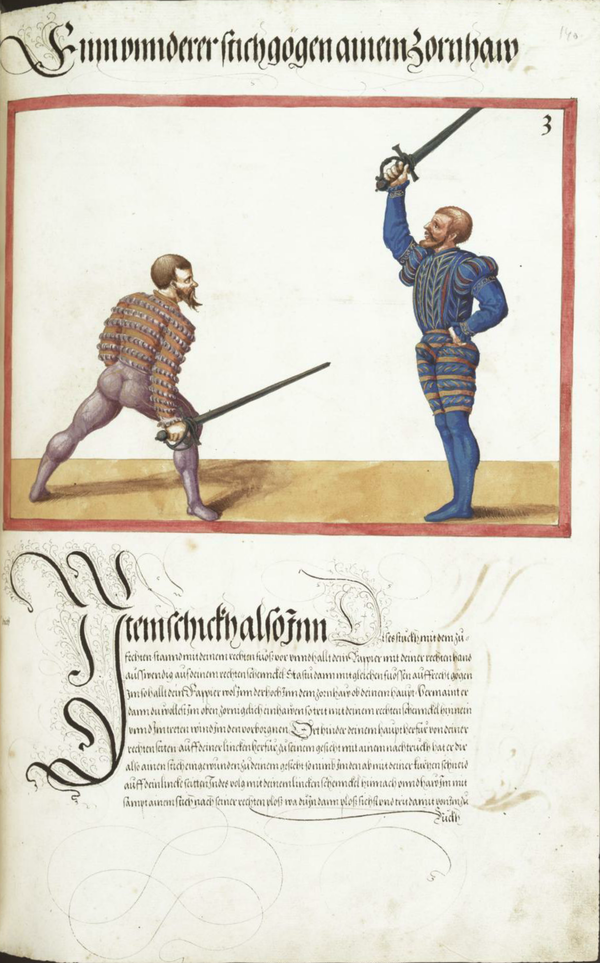 Ein vnnderer stich gogen ainem Zornhaw
3
Item schickh also Inn Dises stuckh mit dem zu-
fechten stannd mit deinem rechten fuoß vor vnnd halt dein Rappier mit deiner rechten hand
auswendig auf deinem rechten schennckel Stast du dann mit gleichen fuossen auffrecht gogen
Im so halt dein Rappier wol Inn der hoch Inn dem zornhaw ob deinem haupt
dann du wollest Im oben zorniglich einhawen so trit mit deinem rechten schennckel hinnein
vnnd Im tretten wind Im den verborgnen Ort hinder deinem haupt herfur von deiner
rechten seitten auf deiner lincken herfur zu seinem gesicht mit ainem nachdruckh hat er die
alls ainen stich eingewunden zu deinem gesicht so nimb Im den ab mit deiner kurtzen schneid
auf dein linck seitten Indes volg mit deinem lincken schennckel hinnach vnnd haw Im mit
sampt ainem stich nach seiner rechten ploß wa du In dann ploß sichst vnd trit damit von Im zu
Ruckh